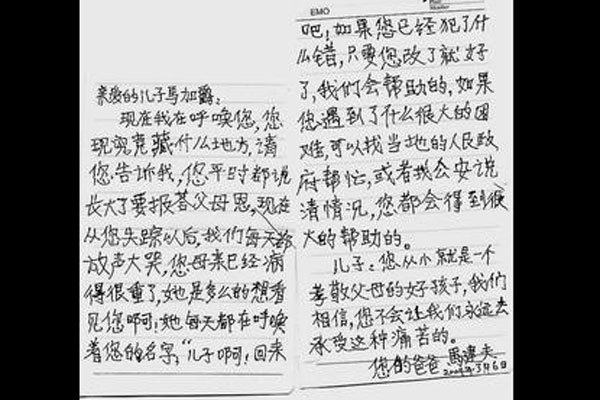 亲爱的儿子马加爵：
现在我在呼唤您，您
现究竟藏什么地方，请
您告诉我，您平时都说
长大了要报答父母恩，现在
从您失踪以后，我们每天都
放声大哭，您母亲已经病
得很重了，她是多么的想看
见您啊！她每天都在呼唤
着您的名字，“儿子啊！回来
EMO
吧！如果您已经犯了什
么错，只要您改了就好
了，我们会帮助的，如果
您遇到了什么很大的困
难，可以找当地的人民政
府帮忙，或者找公安说
清情况，您都会得到很
大的帮助的。
儿子：您从小就是一个
孝敬父母的好孩子，我们
相信，您不会让我们永远去
承受这种痛苦的。
您的爸爸 馬建夫
2004年3月6日